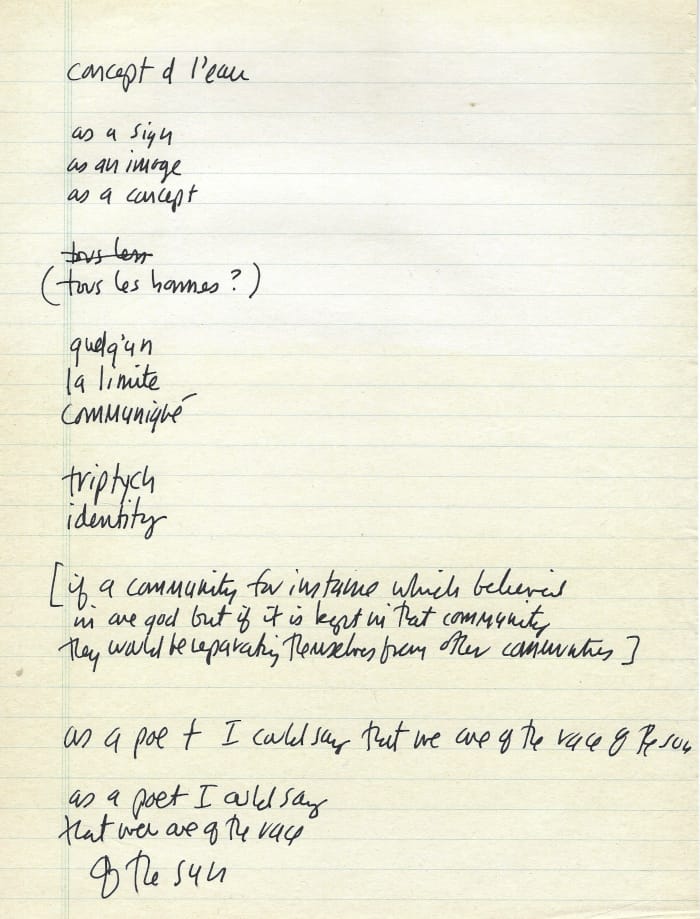 concept d l'eau
as a sign
as an image
as a concept
tous les
(tous les hommes ?)
quelq'un
la limite
communiqué
triptych
identity
[if a community for instance which believes
in one god but if it is kept in that community
they would be separating themselves from other communities]
as a poet I could say that we are of the race of the sun
as a poet I could say
that we are of the race
of the sun